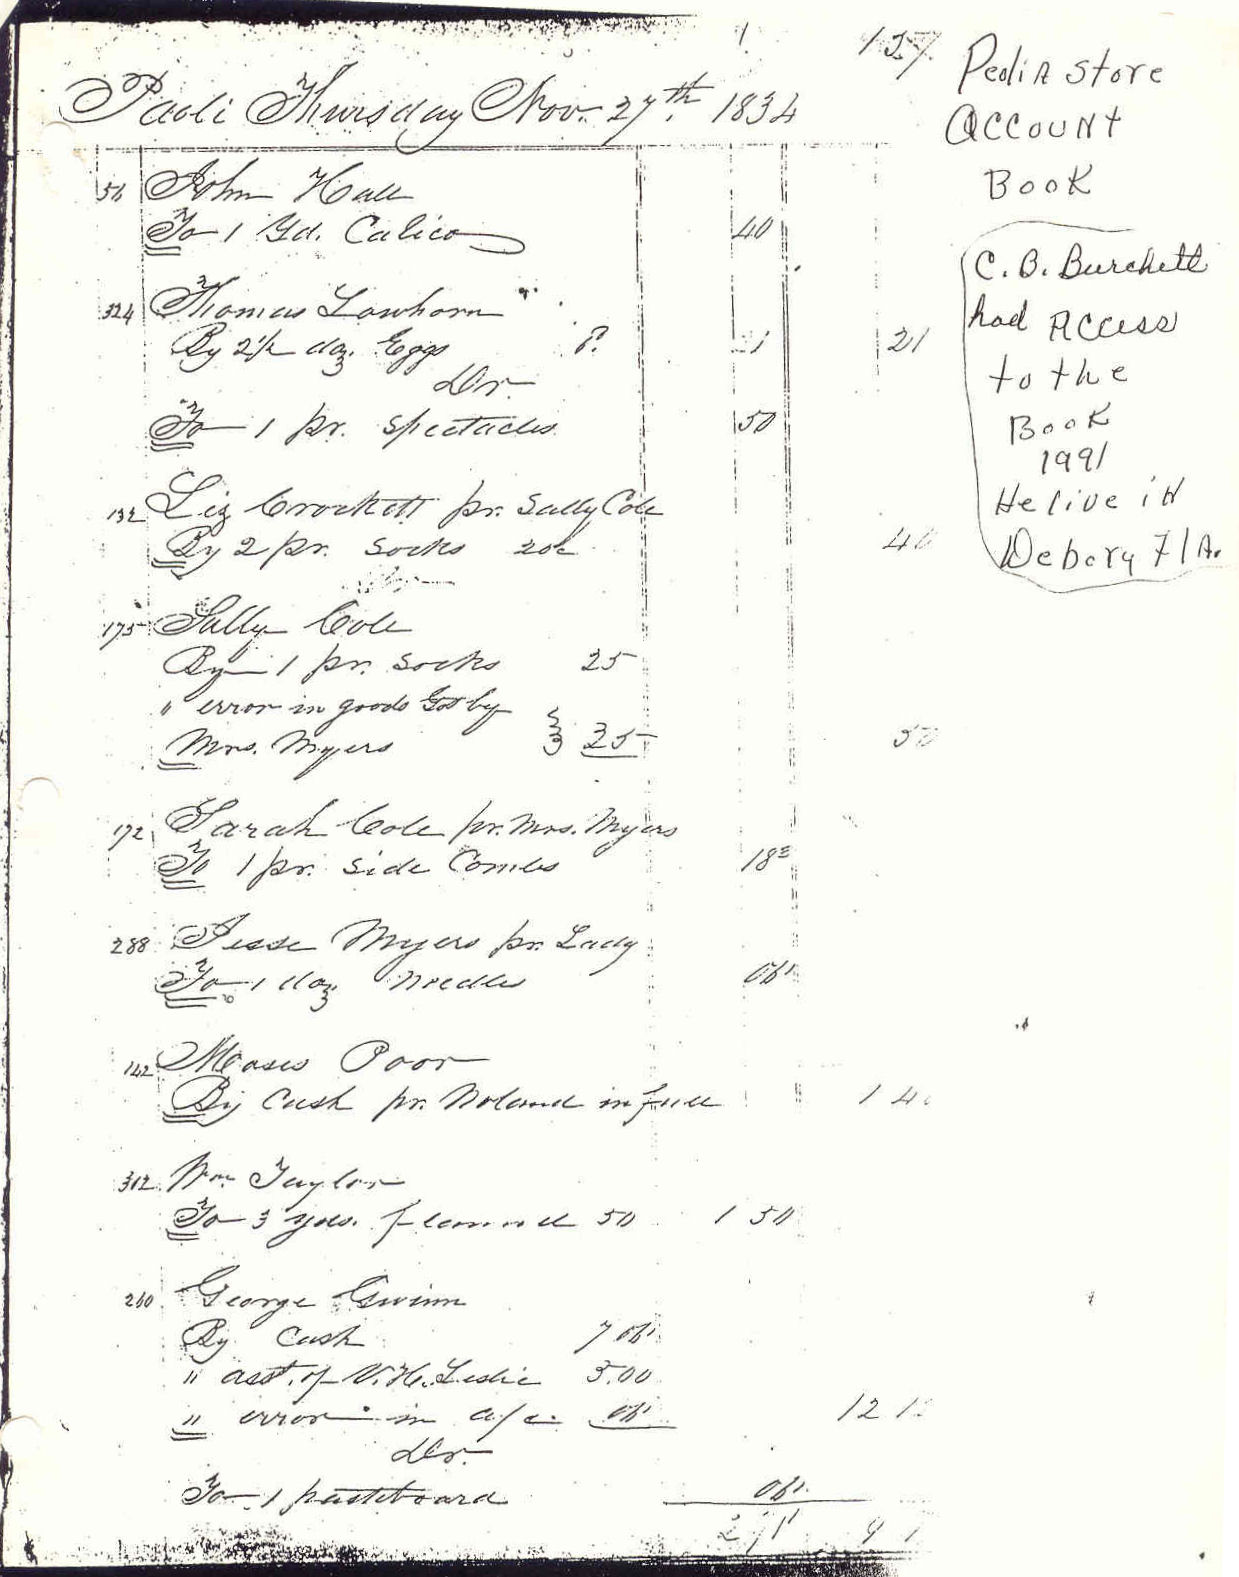 157.
Paoli Thursday Nov. 27th 1834
56 John Hall
To 1 Yd. Calico 40
324 Thomas Lawhorn
By 2½ doz. Eggs 21 21
Dr.
To 1 pr. Spectacles 50
132 Liz Crockett pr. Sally Cole
By 2 pr. Socks 20c 40
175 Sally Cole
By 1 pr. Socks 25
" error in goods Got by
Mrs. Myers } 25 50
172 Sarah Cole pr. Mrs. Myers
To 1 pr. Side Combs 18³
288 Jesse Myers pr. Lady
To 1 doz Needles 06¹
142 Moses Poor
By Cash pr. Noland in full 1 40
312 Wm. Taylor
To 3 yds. flannel 50 1 50
240 George Gwinn
By Cash 7 06¹
" asst. of V. H. Leslie 5.00
" error in a/c 06¹ 12
Dr.
To 1 pasteboard 06¹
Peoli A Store
Account
Book
C. B. Burchett
had Access
to the
Book
1991
He live in
Debary Fla.